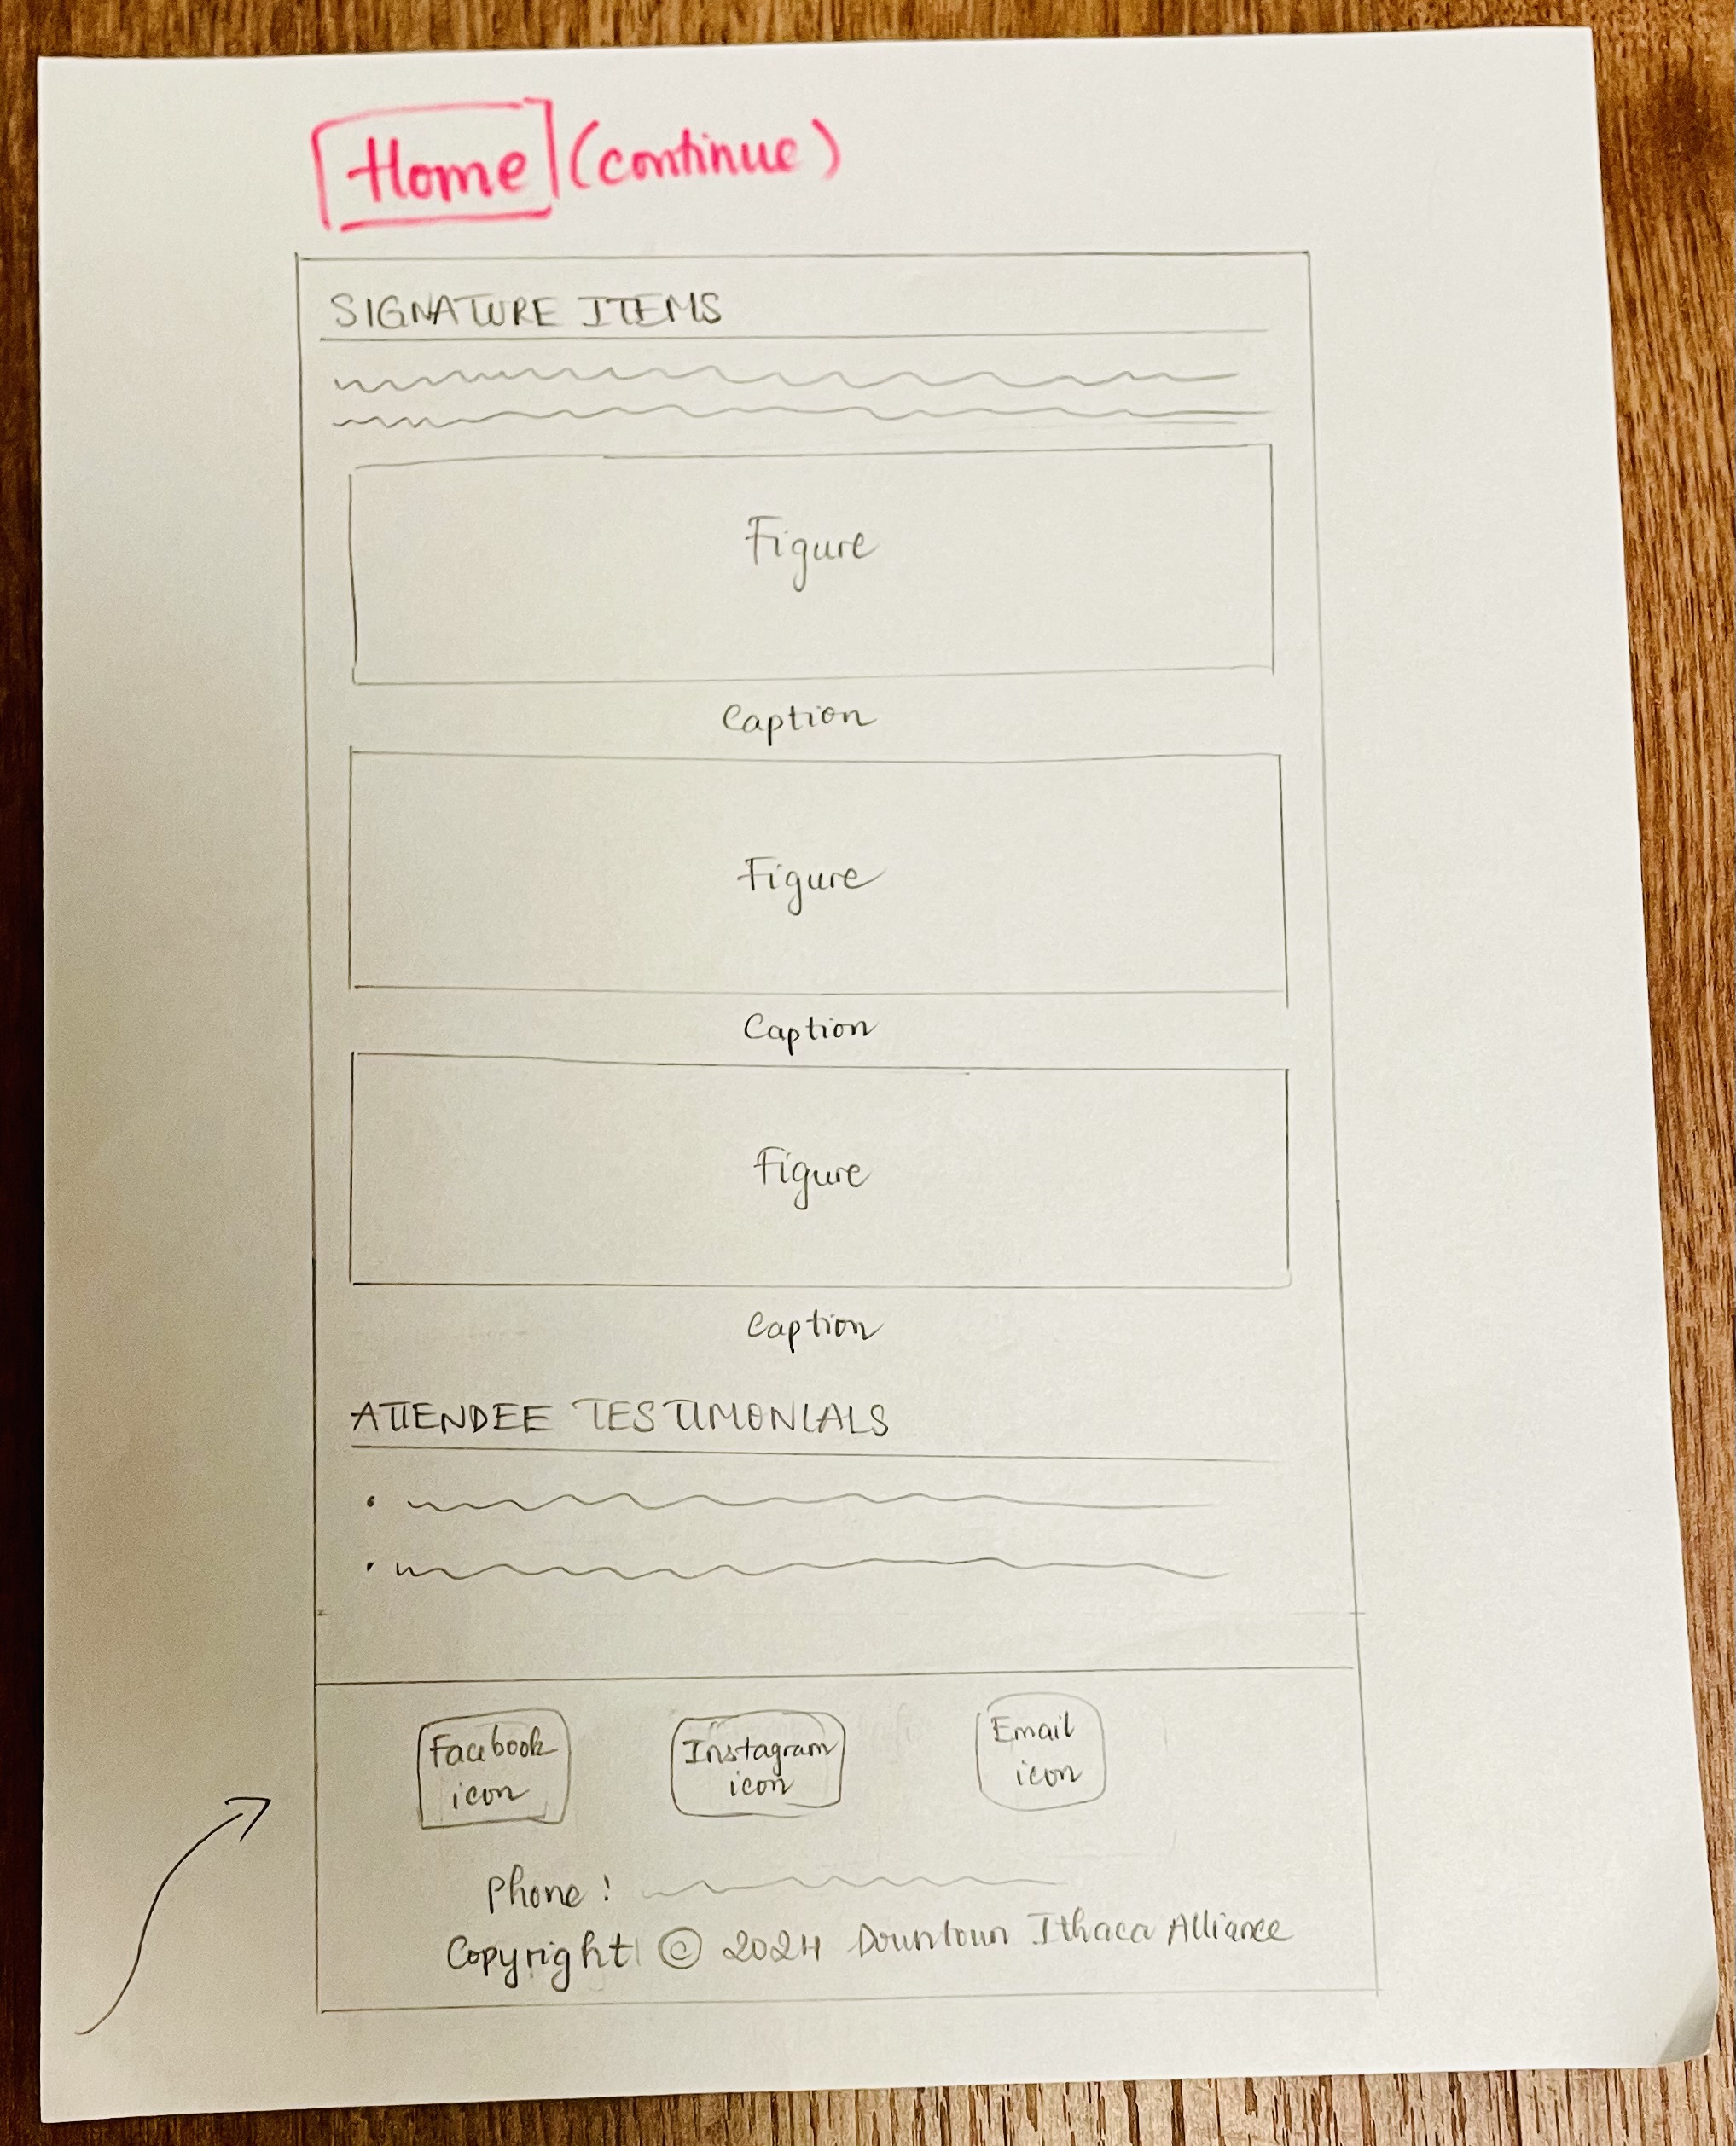 Home (continue)
SIGNATURE ITEMS
Figure
Caption
Figure
Caption
Figure
Caption
ATTENDEE TESTIMONIALS
Facebook icon
Instagram icon
Email icon
Phone :
Copyright © 2024 Downtown Ithaca Alliance